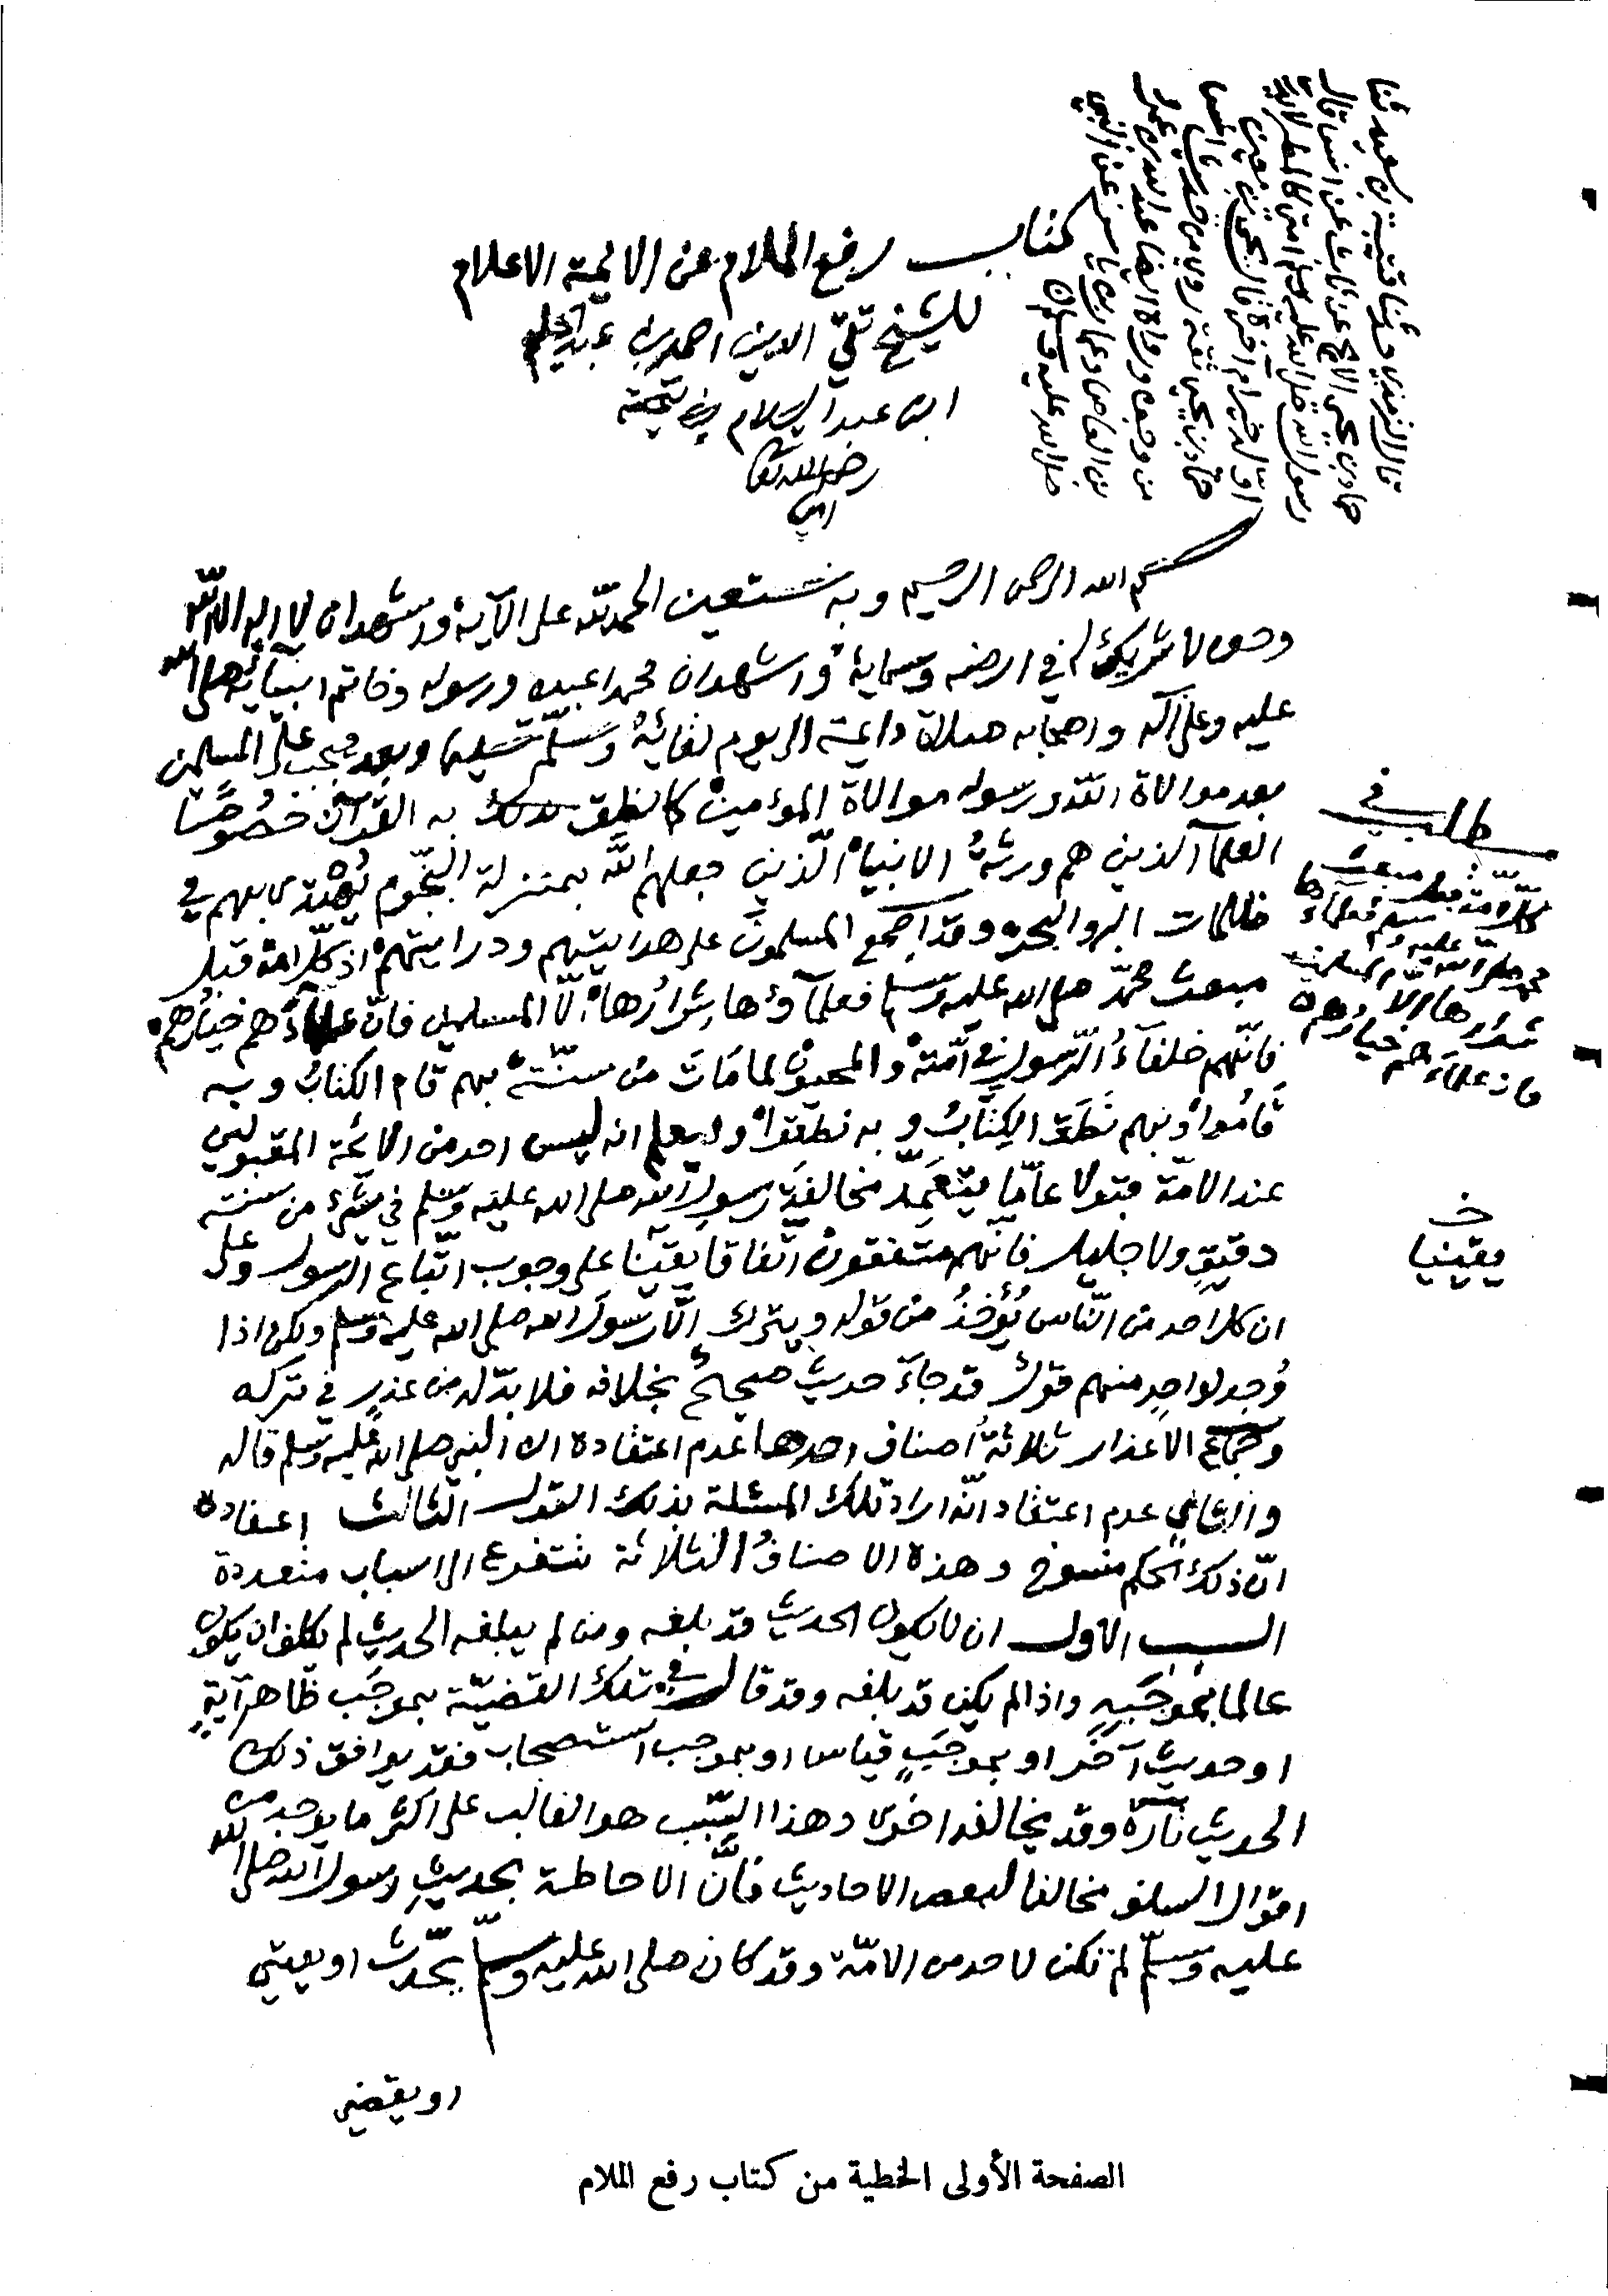 كتاب رفع الملام عن الائمة الاعلام
للشيخ تقي الدين احمد بن عبد الحليم
ابن عبد السلام بن تيمية
رضي الله تعالى
قال الترمذي حدثنا قتيبة بن سعيد ثنا
حماد بن يحيى الابح عن ثابت عن انس قال
رسول الله صلى الله عليه وسلم امتي كالمطر لا يدرى
اوله خير ام آخره
حماد بن يحيى ثقة روي من حديث
صلى الله عليه وسلم
بسم الله الرحمن الرحيم وبه نستعين الحمد لله على الآيه ونشهد ان لا اله الا الله
وحده لا شريك له في ارضه وسمايه واشهد ان محمدا عبده ورسوله وخاتم انبيائه صلى الله
عليه وعلى آله واصحابه صلاة دائمة الى يوم لقائه وسلم تسليما وبعد فيجب على المسلمين
بعد موالاة الله ورسوله موالاة المؤمنين كما نطق به القرآن خصوصا
العلمآ الذين هم ورثة الانبياء الذين جعلهم الله بمنزلة النجوم يهتدى بهم في
ظلمات البر والبحر وقد اجمع المسلمون على هدايتهم ودرايتهم اذ كل امة قبل
مبعث محمد صلى الله عليه وسلم فعلمآؤها شرارها الا المسلمين فان علمآءهم خيارهم
فانهم خلفآء الرسول في امته والمحيون لما مات من سنته بهم قام الكتاب وبه
قاموا وبهم نطق الكتاب وبه نطقوا وليعلم انه ليس احد من الائمة المقبولين
عند الامة قبولا عاما يتعمد مخالفة رسول الله صلى الله عليه وسلم في شيء من سنته
دقيق ولا جليل فانهم متفقون اتفاقا يقينا على وجوب اتباع الرسول وعلى
ان كل احد من الناس يؤخذ من قوله ويترك الا رسول الله صلى الله عليه وسلم ولكن اذا
وجد لواحد منهم قول قد جآء حديث صحيح بخلافه فلا بد له من عذر في تركه
وجماع الاعذار ثلاثة اصناف احدها عدم اعتقاده ان النبي صلى الله عليه وسلم قاله
والثاني عدم اعتقاد انه اراد تلك المسئلة بذلك القول الثالث اعتقاده
ان ذلك الحكم منسوخ وهذه الاصناف الثلاثة تتفرع الى اسباب متعددة
السبب الاول ان لا يكون الحديث قد بلغه ومن لم يبلغه الحديث لم يكلف ان يكون
عالما بموجبه واذا لم يكن قد بلغه وقد قال في تلك القضية بموجب ظاهر آية
او حديث آخر او بموجب قياس او بموجب استصحاب فقد يوافق ذلك
الحديث تارة وقد يخالفه اخرى وهذا السبب هو الغالب على اكثر ما يوجد من
اقوال السلف مخالفا لبعض الاحاديث فان الاحاطة بحديث رسول الله صلى الله
عليه وسلم لم تكن لاحد من الامة وقد كان صلى الله عليه وسلم يحدث او يفتي
او يقضي
مطلب في
كل امة قبل مبعث
محمد صلى الله عليه وسلم فعلماءها
شرارها الا المسلمين
فان علماءهم خيارهم
خ
يقينيا
الصفحة الأولى الخطية من كتاب رفع الملام